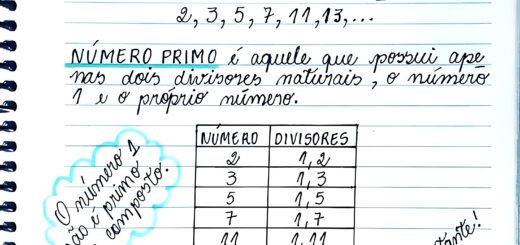 2, 3, 5, 7, 11, 13, ...
NÚMERO PRIMO é aquele que possui ape
nas dois divisores naturais, o número
1 e o próprio número.
NÚMERO DIVISORES
2 1, 2
3 1, 3
5 1, 5
7 1, 7
11 1, 11
O número 1
não é primo
composto.